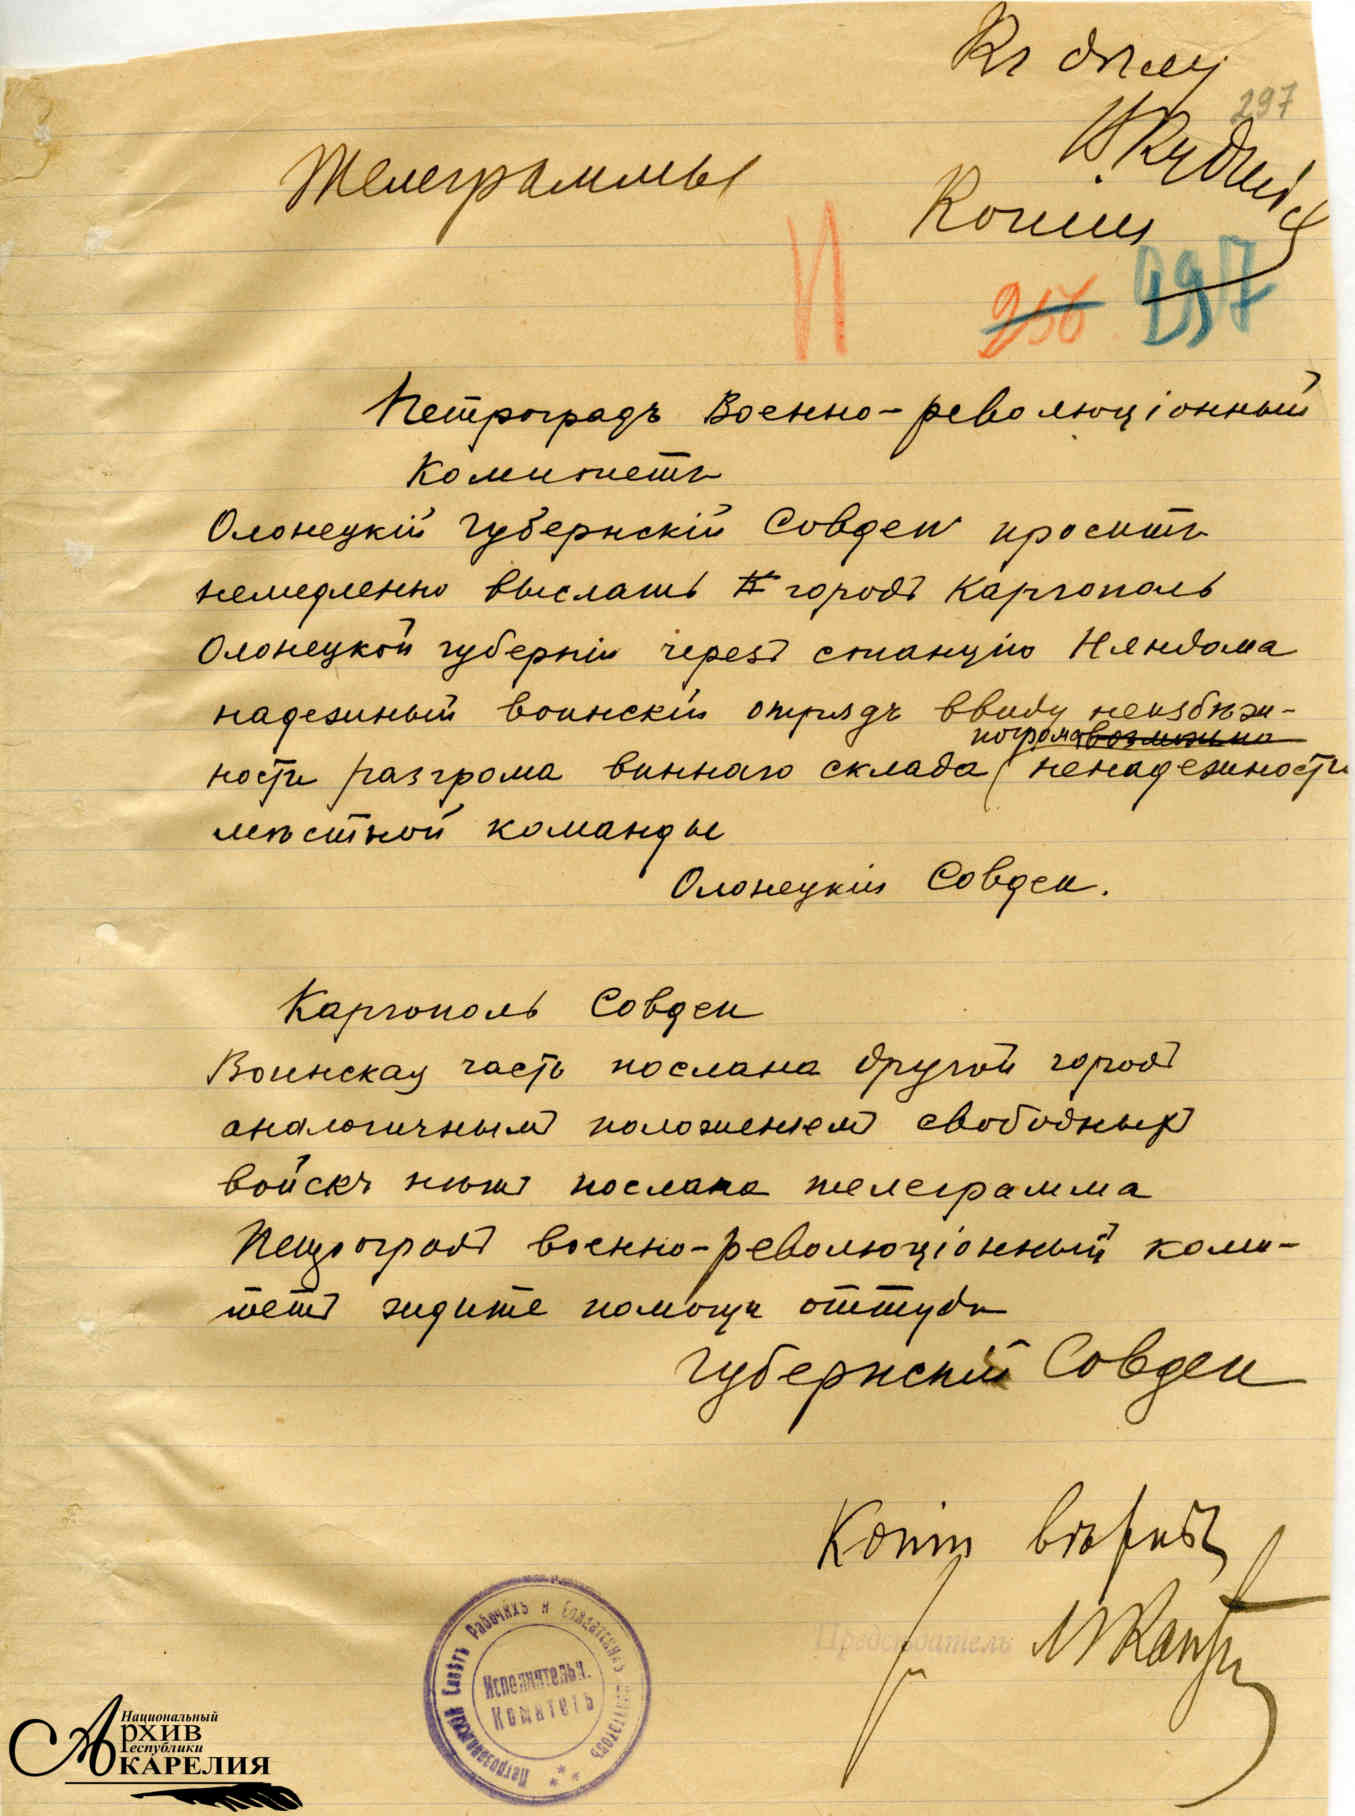 Къ дѣлу
297
Телеграммы
Копии
И
256 297
Петроградъ Военно-революціонный
Комитетъ
Олонецкій Губернскій Совдеп проситъ
немедленно выслать въ городъ Каргополь
Олонецкой губерніи черезъ станцію Няндома
надежный воинскій отрядъ ввиду неизбѣж-
погрома возможно
ности разгрома виннаго склада ненадежности
мѣстной команды
Олонецкій Совдеп.
Каргополь Совдеп
Воинская часть послана другой городъ
аналогичнымъ положеніемъ свободныхъ
войскъ нѣтъ послана телеграмма
Петроградъ военно-революціонный коми-
тетъ ждите помощи оттуда
Губернскій Совдеп
Копія вѣрна
Предсѣдатель
Петрозаводскій Совѣтъ Рабочихъ и Солдатскихъ Депутатовъ
Исполнительн.
Комитетъ
Национальный
Архив
Республики
Карелия